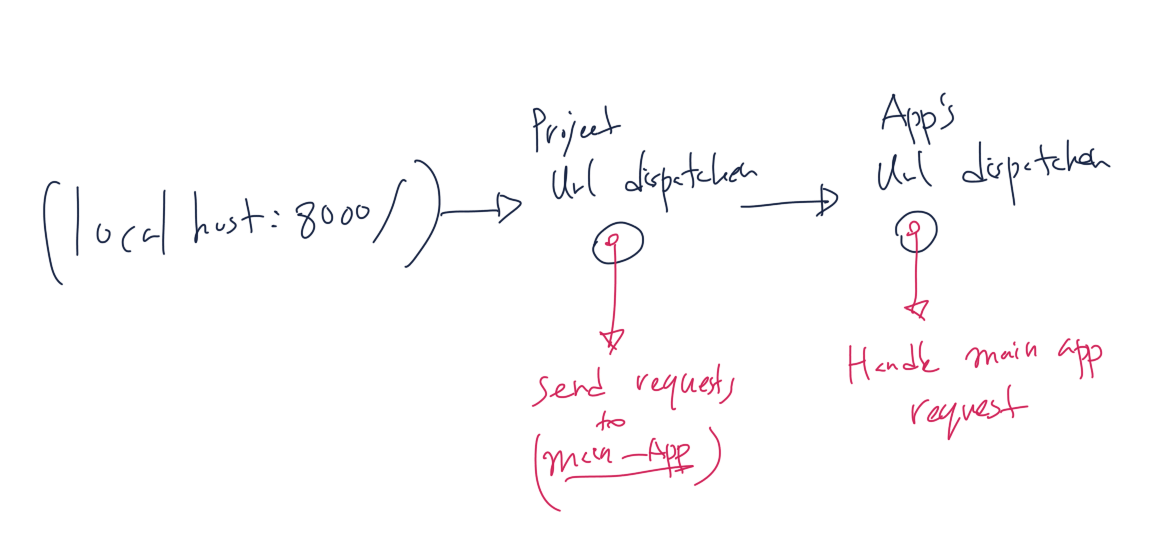 (local host: 8000/)
Project
Url dispatcher
App's
Url dispatcher
Send requests
to
(main_App)
Handle main app
request